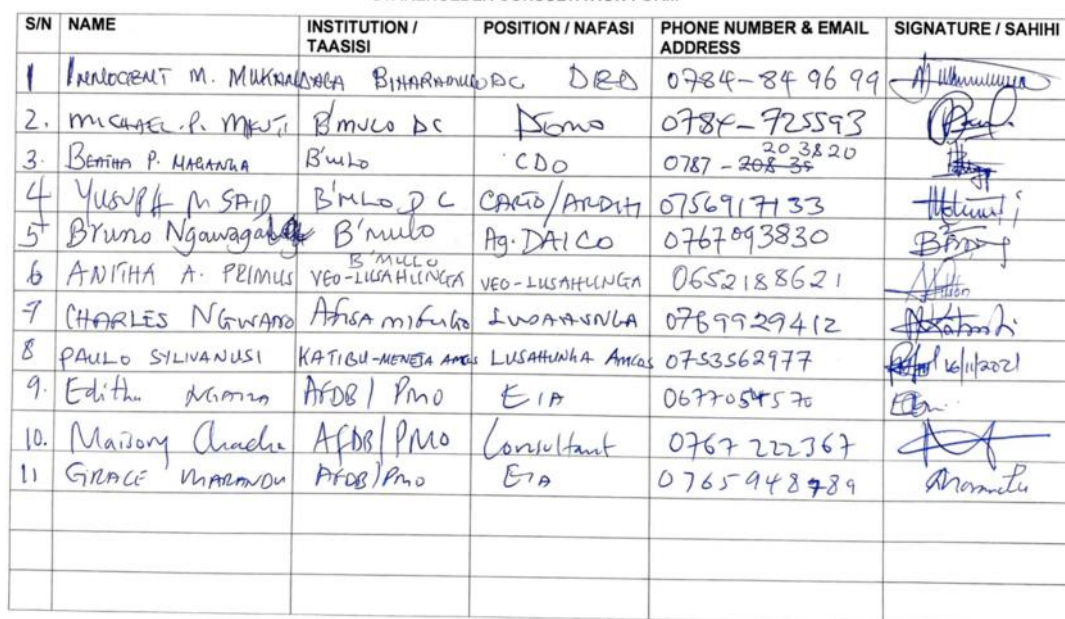 S/N NAME INSTITUTION / TAASISI POSITION / NAFASI PHONE NUMBER & EMAIL ADDRESS SIGNATURE / SAHIHI
1 INNOCENT M. MUKANDALA BIHARAMULO DC DED 0784-84 96 99
2. MICHAEL. P. B'MULO DC 0784-725593
3. BERTHA P. MAGANGA B'mulo CDO 0787 - 208 35 203820
4 YUSUPH M SAID B'MLO DC CARTO/ARDHI 0756917133
5 Bruno B'mulo Ag. DAICO 0767093830
6 ANITHA A. PRIMUS B'MULO VEO-LUSAHUNGA VEO-LUSAHUNGA 0652188621
7 CHARLES Afisa mifugo LUSAHUNGA 0769929412
8 PAULO SYLIVANUSI KATIBU-MENEJA AMCOS LUSAHUNGA AMCOS 0753562977 16/11/2021
9. Editha AFDB/ PMO EIA 0677054570
10. Maisory Chacha AFDB/PMO Consultant 0767 222367
11 GRACE MARANDU AFDB/PMO EIA 0765948789